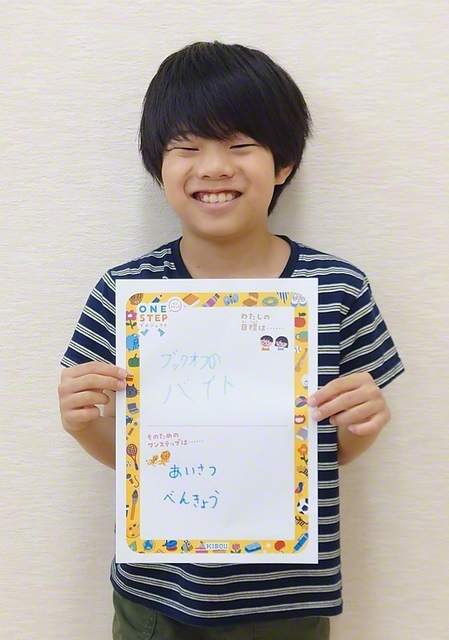 ONE
STEP
プロジェクト
わたしの
目標は……
ブックオフの
バイト
そのための
ワンステップは……
あいさつ
べんきょう
KIBOU